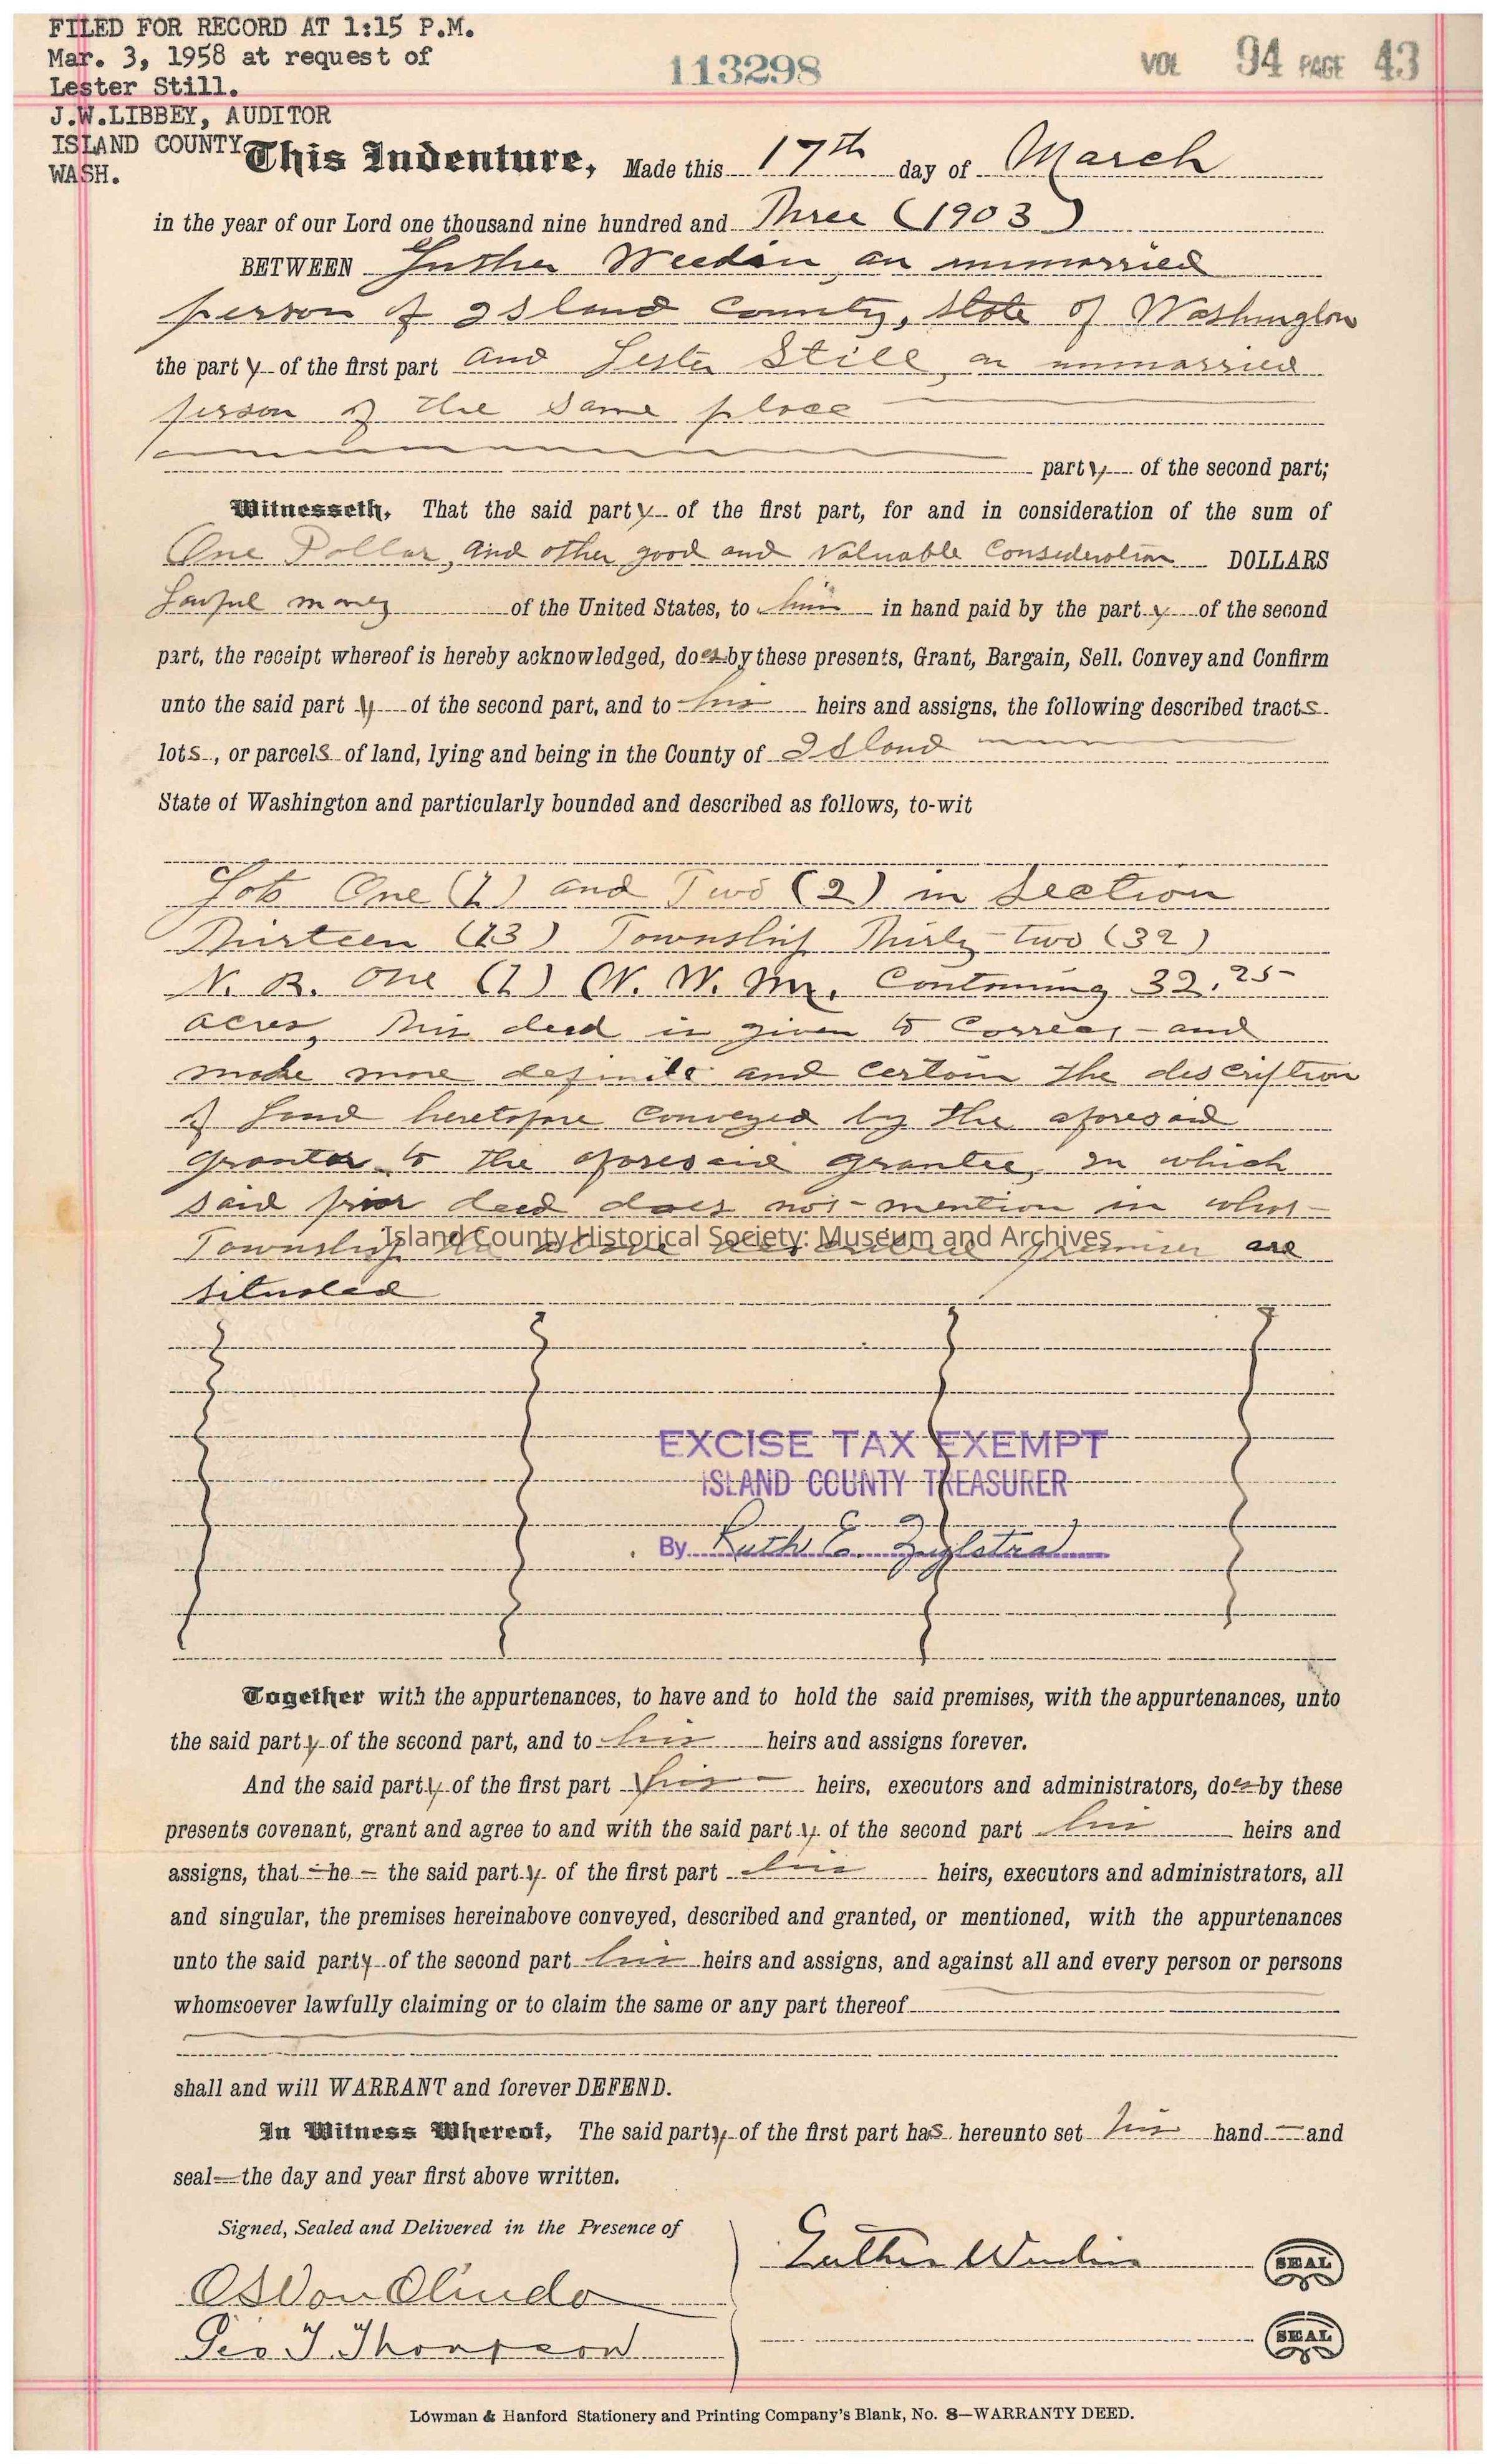 FILED FOR RECORD AT 1:15 P.M.
Mar. 3, 1958 at request of
Lester Still.
J.W.LIBBEY, AUDITOR
ISLAND COUNTY
WASH.
113298
VOL 94 PAGE 43
This Indenture, Made this 17th day of March
in the year of our Lord one thousand nine hundred and Three (1903)
BETWEEN Luther Weedin, an unmarried
person of Island County, State of Washington
the party of the first part and Lester Still, an unmarried
person of the same place
party of the second part;
Witnesseth, That the said party of the first part, for and in consideration of the sum of
One Dollar, and other good and Valuable Consideration DOLLARS
Lawful money of the United States, to him in hand paid by the party of the second
part, the receipt whereof is hereby acknowledged, does by these presents, Grant, Bargain, Sell. Convey and Confirm
unto the said party of the second part, and to his heirs and assigns, the following described tracts
lots, or parcels of land, lying and being in the County of Island
State of Washington and particularly bounded and described as follows, to-wit
Lots One (1) and Two (2) in Section
Thirteen (13) Township Thirty-two (32)
N. R. One (1) W. W. M. Containing 32.25
acres, This deed is given to Correct and
make more definite and certain the description
of Land heretofore Conveyed by the aforesaid
grantor to the aforesaid grantee, in which
said prior deed does not mention in what
Township the above described premises are
situated
Island County Historical Society: Museum and Archives
EXCISE TAX EXEMPT
ISLAND COUNTY TREASURER
By Ruth E. Zylstra
Together with the appurtenances, to have and to hold the said premises, with the appurtenances, unto
the said party of the second part, and to his heirs and assigns forever.
And the said party of the first part his heirs, executors and administrators, does by these
presents covenant, grant and agree to and with the said party of the second part his heirs and
assigns, that he the said party of the first part his heirs, executors and administrators, all
and singular, the premises hereinabove conveyed, described and granted, or mentioned, with the appurtenances
unto the said party of the second part his heirs and assigns, and against all and every person or persons
whomsoever lawfully claiming or to claim the same or any part thereof
shall and will WARRANT and forever DEFEND.
In Witness Whereof, The said party of the first part has hereunto set his hand and
seal the day and year first above written.
Signed, Sealed and Delivered in the Presence of
Luther Weedin SEAL
Geo T. Thompson
SEAL
Lowman & Hanford Stationery and Printing Company's Blank, No. 8—WARRANTY DEED.